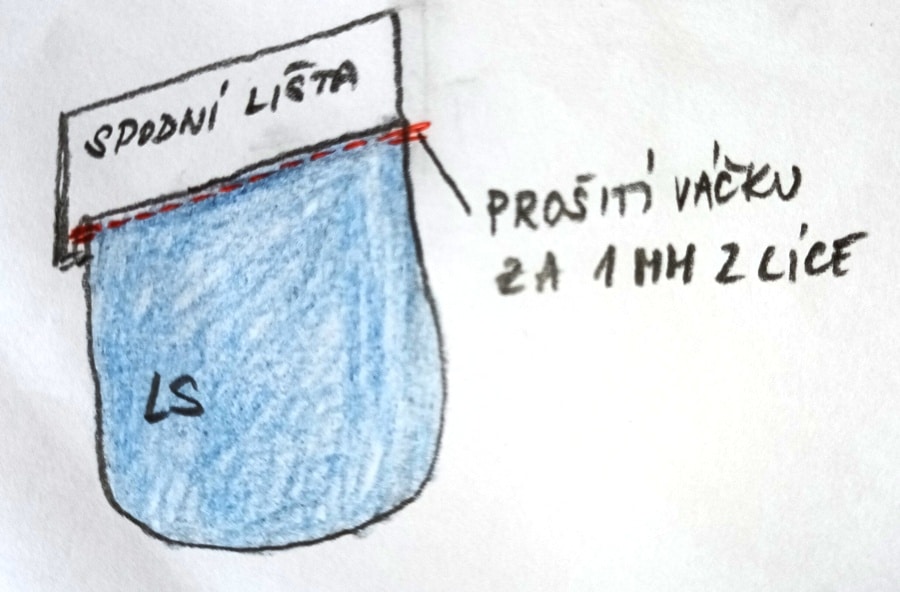 SPODNÍ LIŠTA
PROŠITÍ VÁČKU
ZA 1 MM Z LÍCE
LS